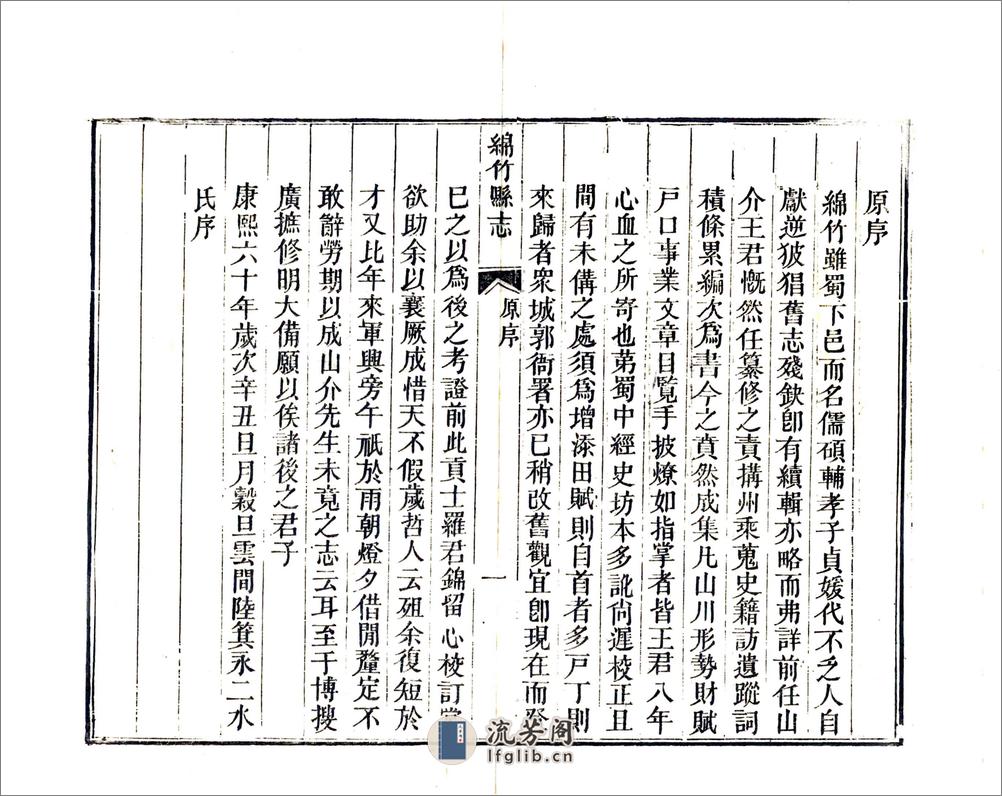 原序
綿竹雖蜀下邑而名儒碩輔孝子貞媛代不乏人自
獻逆披猖舊志殘缺卽有續輯亦略而弗詳前任山
介王君慨然任纂修之責搆州乘蒐史籍訪遺蹤詞
積條累編次爲書今之賁然成集凡山川形勢財賦
戸口事業文章目覧手披燎如指掌者皆王君八年
心血之所寄也苐蜀中經史坊本多訛尙遲校正且
間有未備之處須爲增添田賦則自首者多戸丁則
來歸者衆城郭衙署亦已稍改舊觀宜卽現在而
綿竹縣志
原序
一
已之以爲後之考證前此貢士羅君錦留心校訂
欲助余以襄厥成惜天不假歲哲人云殂余復短於
才又比年來軍興旁午祇於雨朝燈夕借閒釐定不
敢辭勞期以成山介先生未竟之志云耳至于博搜
廣摭修明大備願以俟諸後之君子
康熙六十年歲次辛丑日月穀旦雲間陸箕永二水
氏序
流芳阁
lfglib.cn